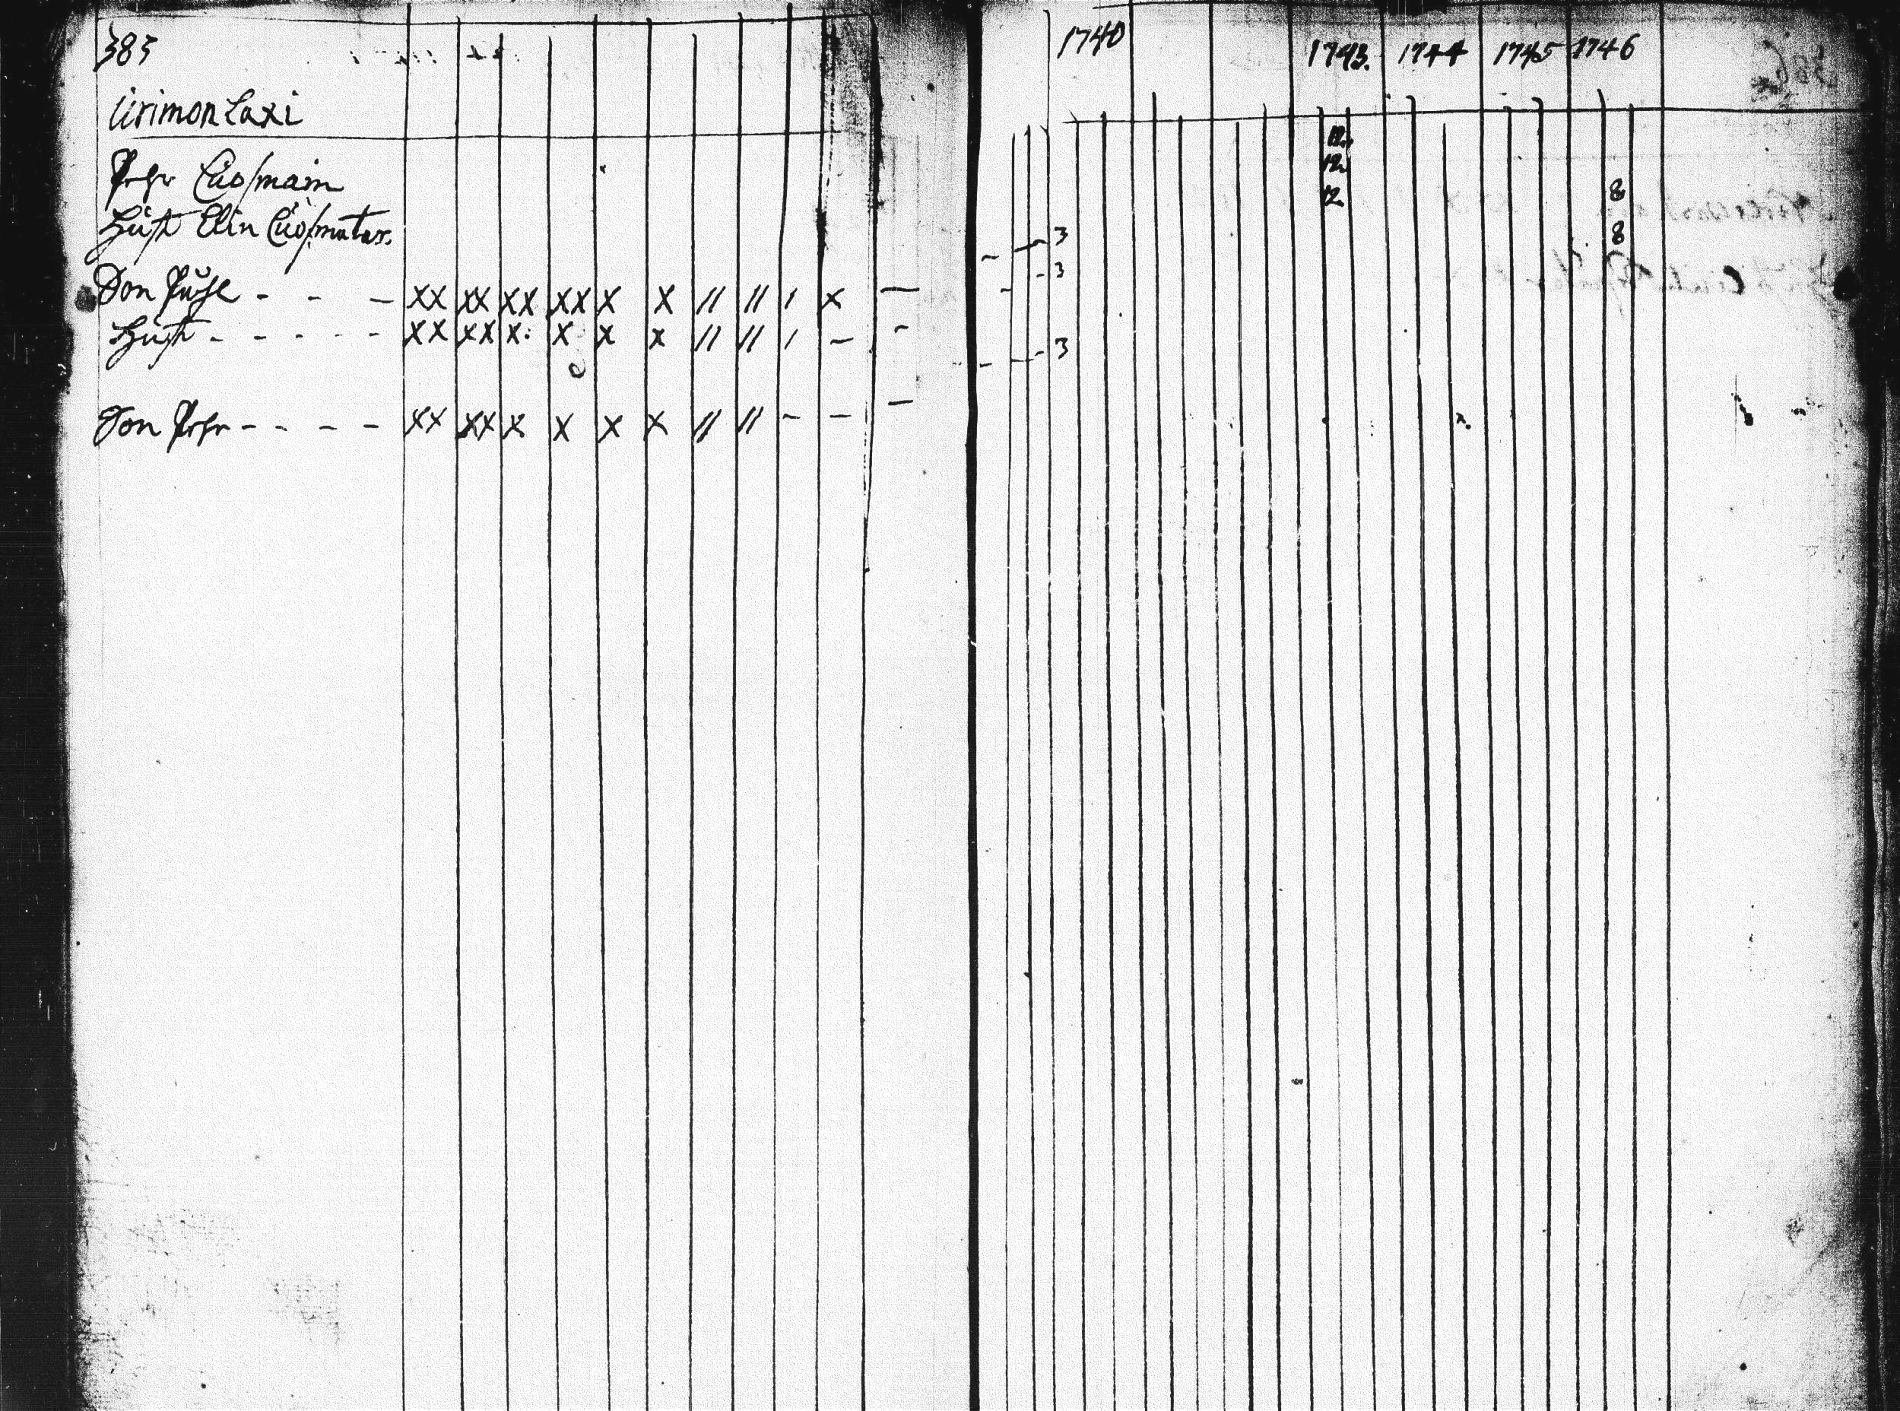 385
1740 1743. 1744 1745 1746
Urimonlaxi
Pehr Cuosmain
Hust: Elin Cuosmatar.
12.
12.
12. 8
8
3
Son Påhl - - - xx xx xx xx x x // // / x —
3
Hust: - - - - - xx xx x: x x x // // / - -
3
Son Pehr - - - - xx xx x x x x // // - - —